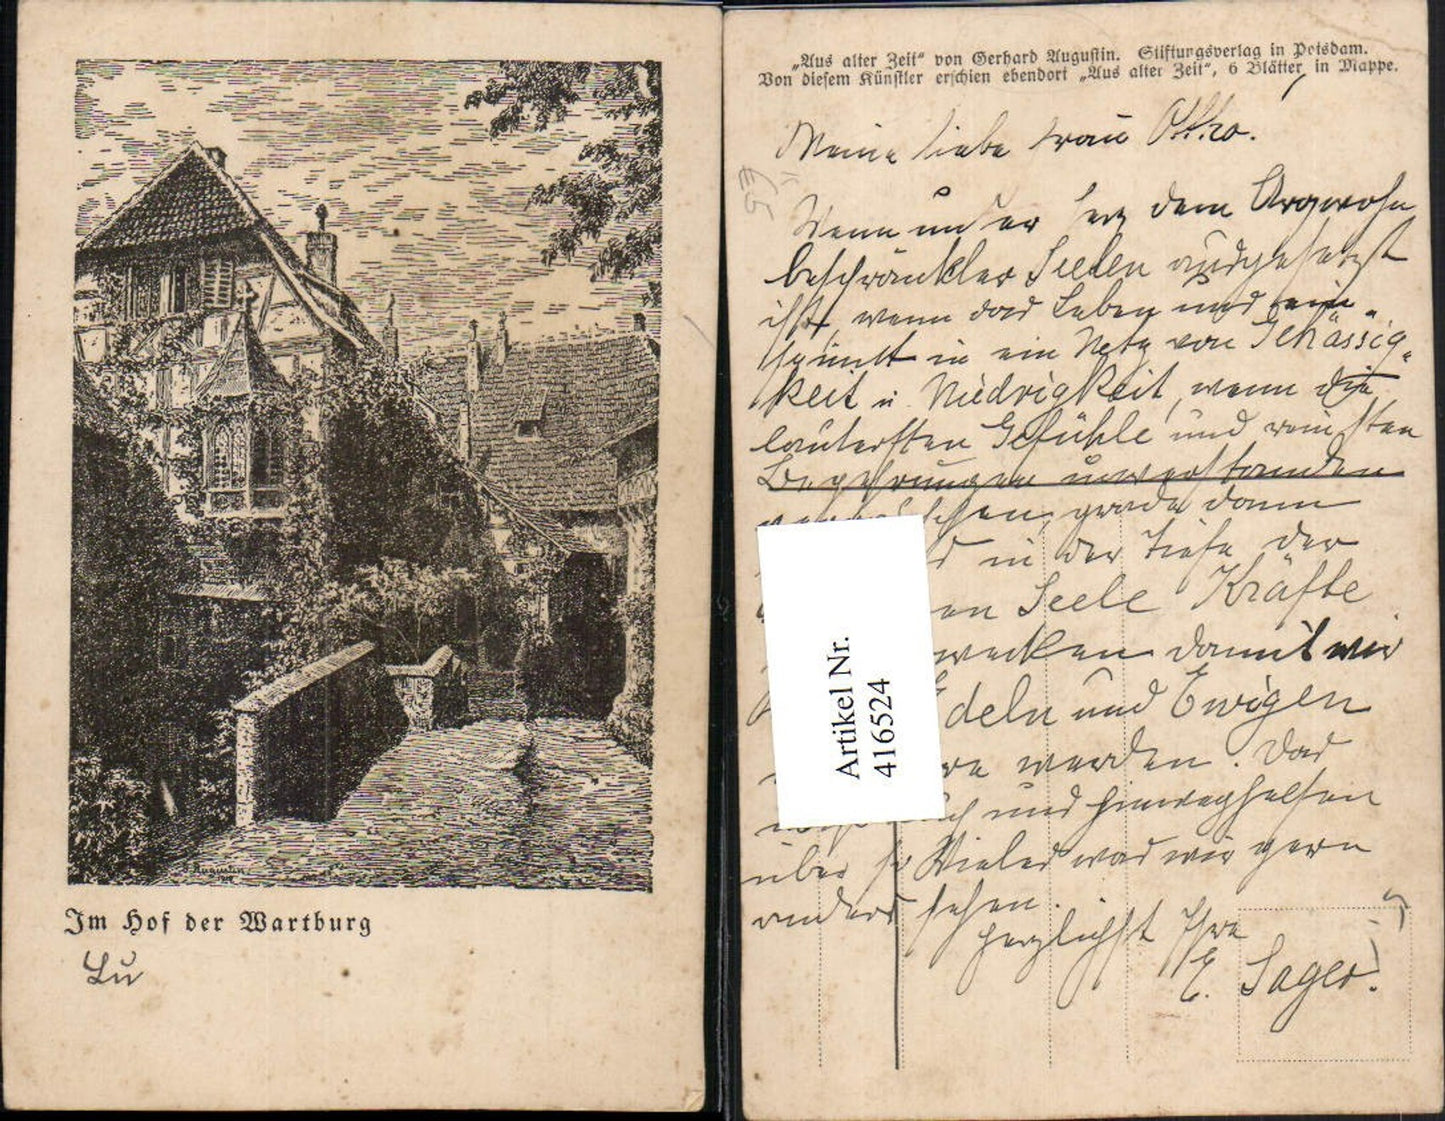 Augustin
Im Hof der Wartburg
„Aus alter Zeit“ von Gerhard Augustin. Stiftungsverlag in Potsdam.
Von diesem Künstler erschien ebendort „Aus alter Zeit“, 6 Blätter in Mappe.
Meine liebe Frau Otto.
Wenn unser Herz dem Argwohn
beschränkter Seelen ausgesetzt
ist, wenn das Leben und ein-
spinnt in ein Netz von Gehässig-
keit u. Niedrigkeit, wenn die
lautersten Gefühle und reinsten
Begehrungen unverstanden
gerade dann
in der Tiefe der
Seele Kräfte
wecken damit wir
Edeln und Ewigen
werden. Das
und hinweghelfen
über so Vieles was wir gern
anders sehen.
Herzlichst Ihre
E. Sager.
Artikel Nr.
416524